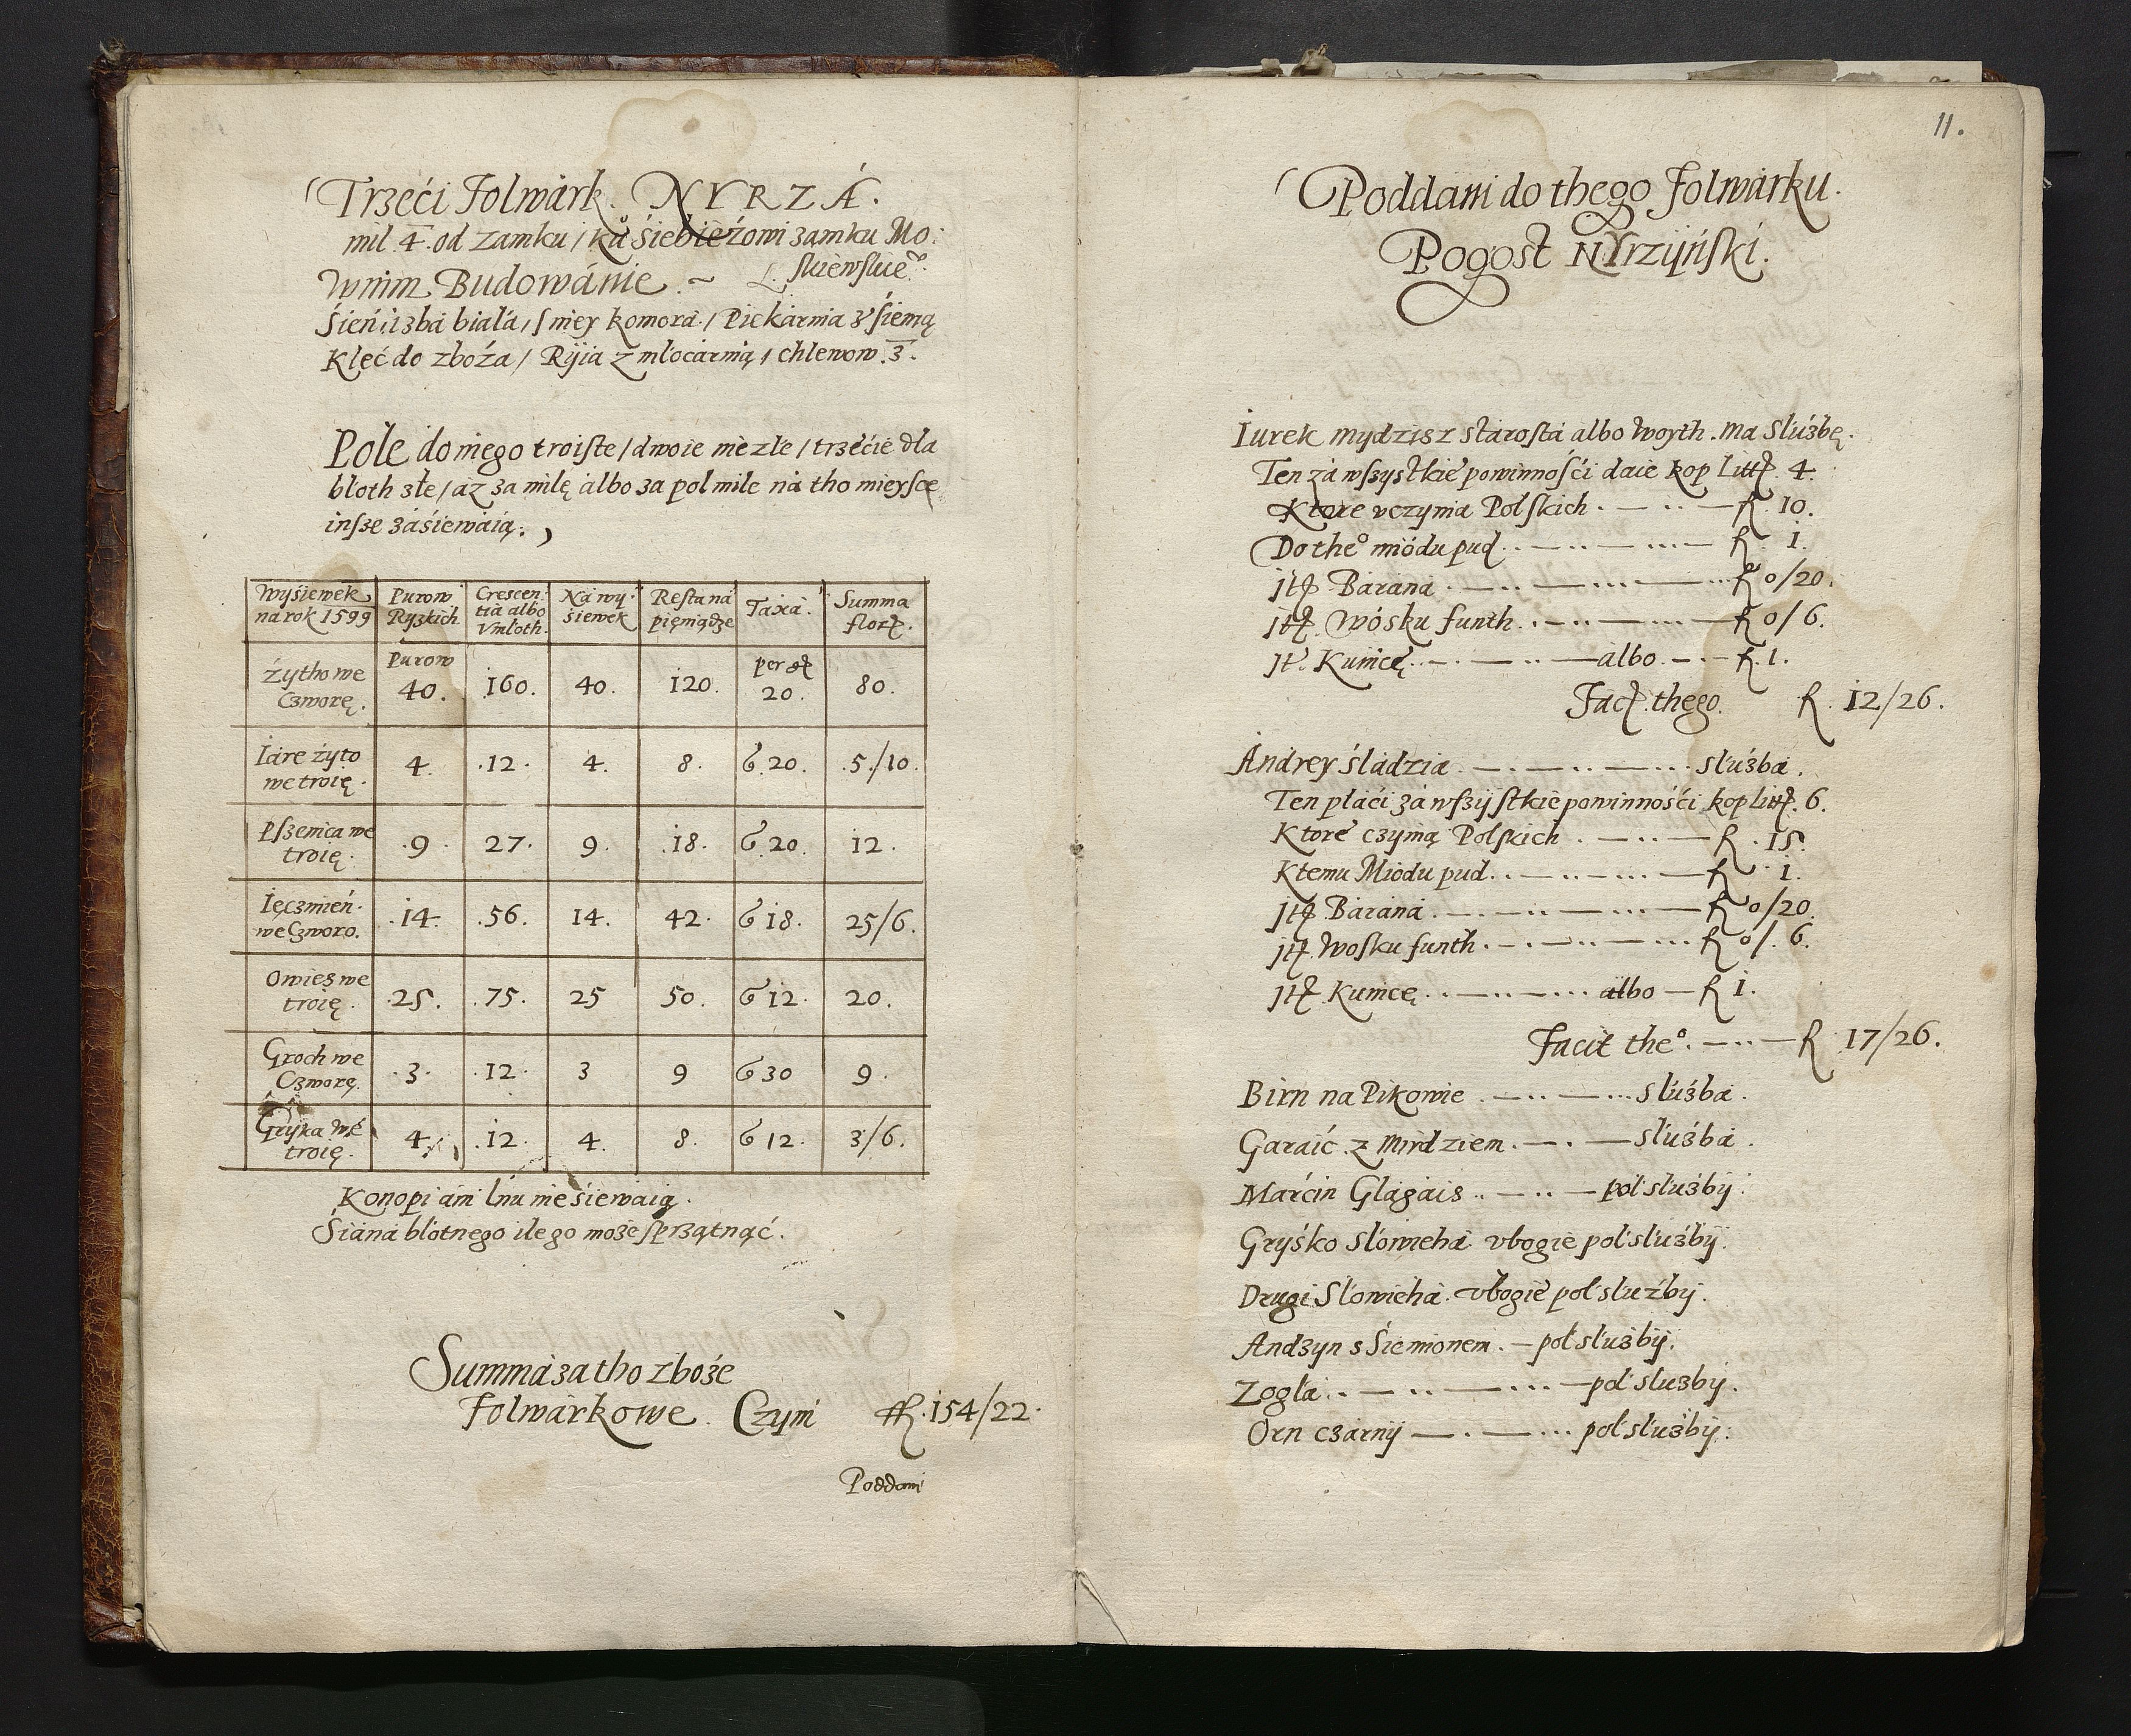 Trzeći Folwárk. NYRZÁ.
mil 4. od zamku / ku Śiebieżowi zamku Mo:
skiewskie°.
W nim Budowánie. ~
Śień, izbá biała, / s niey komorá. / Piekárnia z śienią
Kleć do zboża / Ryia z młocárnią, / chlewow .3.
Pole do niego troiste / dwoie nie złe / trzećie dla
błoth złe / áz zá milę albo zá poł mile ná tho mieysce
insze záśiewáią.
Wyśiewek na rok 1599 | Purow Ryzkich | Crescentia albo Vmłoth. | Ná wyśiewek | Resta ná pięniądze | Taxá. | Summa flor.
Żytho we Czworę. | Purow 40. | 160. | 40. | 120. | per gr 20. | 80.
Iáre żyto we troię. | 4. | .12. | 4. | 8. | G 20. | .5./10.
Pszenica we troię. | .9. | 27. | 9. | .18. | G 20. | 12.
Ięczmień we Czworo. | .14. | .56. | 14. | 42. | G 18. | 25/6.
Owies we troię. | .25. | .75. | 25 | 50. | G 12. | 20.
Groch we Czworę. | .3. | .12. | 3 | 9 | G 30 | 9.
Gryka wé troię. | 4. | .12. | 4. | 8. | G 12. | 3/6.
Konopi áni lnu nie śiewáią.
Śiáná błotnego ile go może sprzątnąć.
Summá zá tho zboże
Folwárkowe. Czyni ff. 154/22.
Poddani
11.
Poddáni do thego folwárku.
Pogost NYrzyński.
Iurek mydzisz stárostá albo Woyth. ma służbę.
Ten zá wszystkie powinnośći dáie kop Litt. 4.
Ktore vczynia Polskich . — .. — f. 10.
Do the° miódu pud .. — .. — ... — f. 1.
Jtt Báráná . — .. — ... — ... f 0/20.
Jtt. Wósku funth. . — .. — ... — f 0/6.
Jt. Kunicę. . — . — .. — albo. — . — f. 1.
Fact. thego. f. 12/26.
Ándrey śládziá . — . — .. — ... służbá.
Ten płáći zá wszystkie powinnośći kop litt. 6.
Ktoré czynią Polskich . — .. — f. 15.
K temu Miodu pud. . — .. — ... — f. 1.
Jtt Báráná. . — .. — ... — f 0/20.
Jtt Wosku funth. — . — .. — ... f 0/. 6.
Jtt Kunicę . . — .. — ... albo — f 1.
Facit the°. — .. — f 17/26.
Birn na Pikowie . — .. — ... służbá.
Garáić z Mirdziem. — . — służbá.
Marćin Glágáis .. — .. — poł służby.
Gryśko Słówiehá vbogie poł służby.
Drugi Słowiehá. vbogie poł służby.
Andzyn s Śiemionem. — poł służby.
Zogłá .. — .. — ... — poł służby.
Orn czárny — . — ... poł służby: